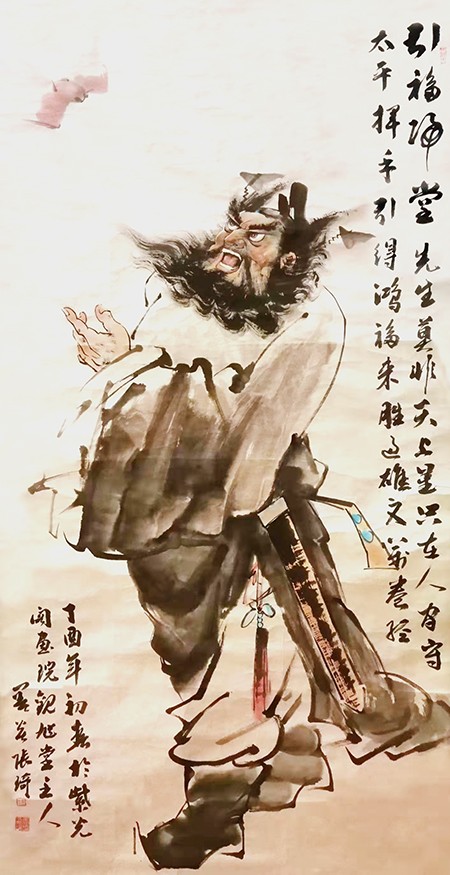 引福归堂先生莫非天上星只在人间守
太平挥手引得鸿福来胜过雄文万卷经
丁酉年初春於紫光
阁画院观旭堂主人
张琦